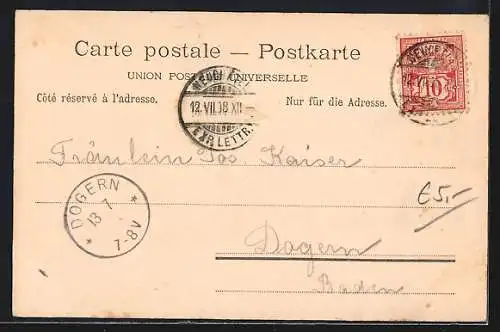 Carte postale — Postkarte
UNION POSTALE UNIVERSELLE
Côté réservé à l'adresse.
Nur für die Adresse.
NEUCHATEL
12.VII.98.XII
EXP. LETTR.
10
Fräulein Jos. Kaiser
DOGERN
13 7
7-8V
€5,-
Dogern
Baden